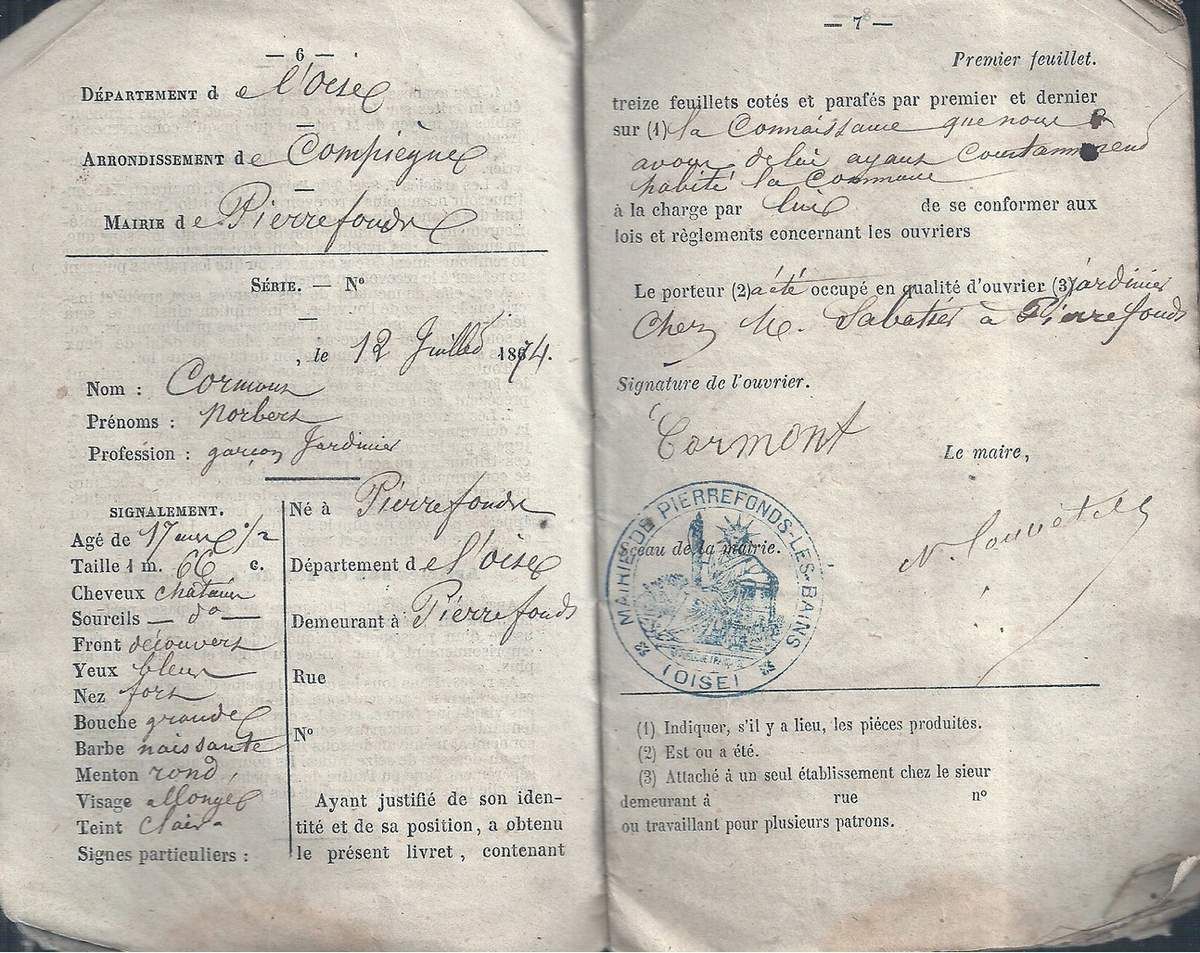 — 6 —
DÉPARTEMENT de l'Oise
ARRONDISSEMENT de Compiègne
MAIRIE de Pierrefonds
SÉRIE. — N°
, le 12 Juillet 1874.
Nom : Cormont
Prénoms : Norbert
Profession : garçon Jardinier
SIGNALEMENT.
Agé de 17 ans 1/2
Taille 1 m. 66 c.
Cheveux châtain
Sourcils — d° —
Front découvert
Yeux bleus
Nez fort
Bouche grande
Barbe naissante
Menton rond
Visage allongé
Teint Clair
Signes particuliers :
Né à Pierrefonds
Département de l'oise
Demeurant à Pierrefonds
Rue
N°
Ayant justifié de son iden-
tité et de sa position, a obtenu
le présent livret, contenant
— 7 —
Premier feuillet.
treize feuillets cotés et parafés par premier et dernier
sur (1) la Connaissance que nous
avons de lui ayant Constamment
habité la Commune
à la charge par lui de se conformer aux
lois et règlements concernant les ouvriers
Le porteur (2) a été occupé en qualité d'ouvrier (3) jardinier
Chez M. Sabatier à Pierrefonds
Signature de l'ouvrier.
Cormont
Le maire,
Sceau de la mairie.
MAIRIE DE PIERREFONDS-LES-BAINS
(OISE)
(1) Indiquer, s'il y a lieu, les piéces produites.
(2) Est ou a été.
(3) Attaché à un seul établissement chez le sieur
demeurant à rue n°
ou travaillant pour plusieurs patrons.